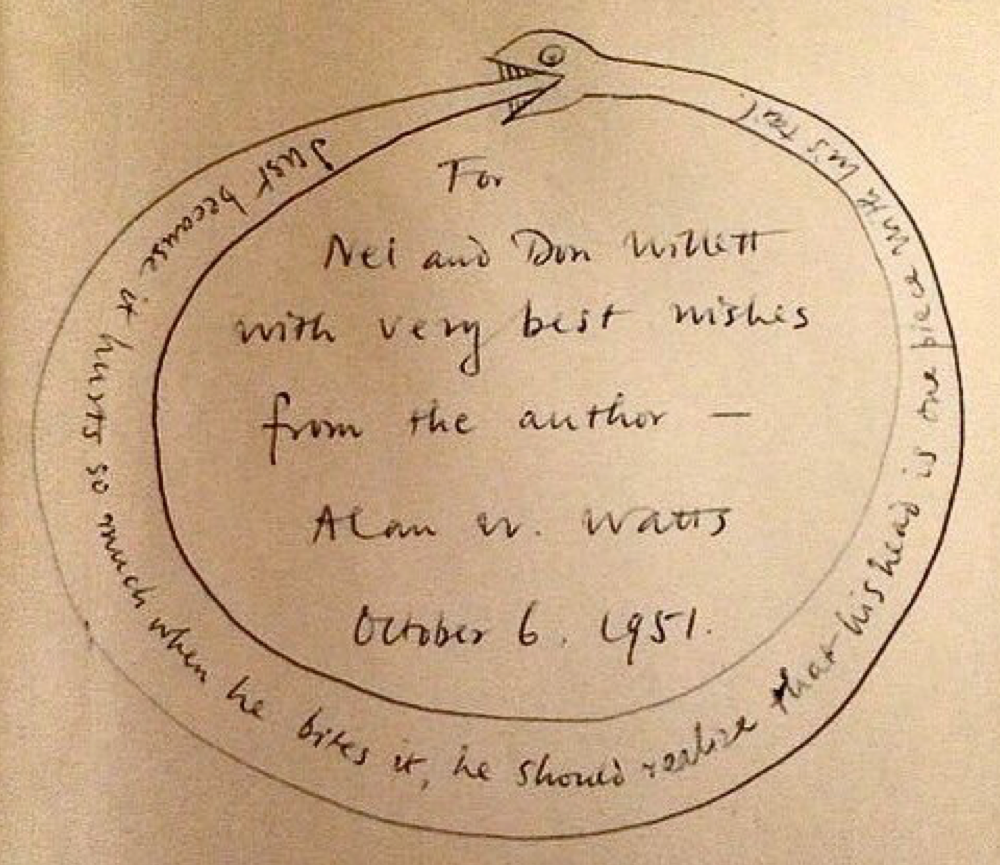 For
Nel and Don Willett
with very best wishes
from the author —
Alan W. Watts
October 6. 1951.
Just because it hurts so much when he bites it, he should realize that his head is one piece with his tail